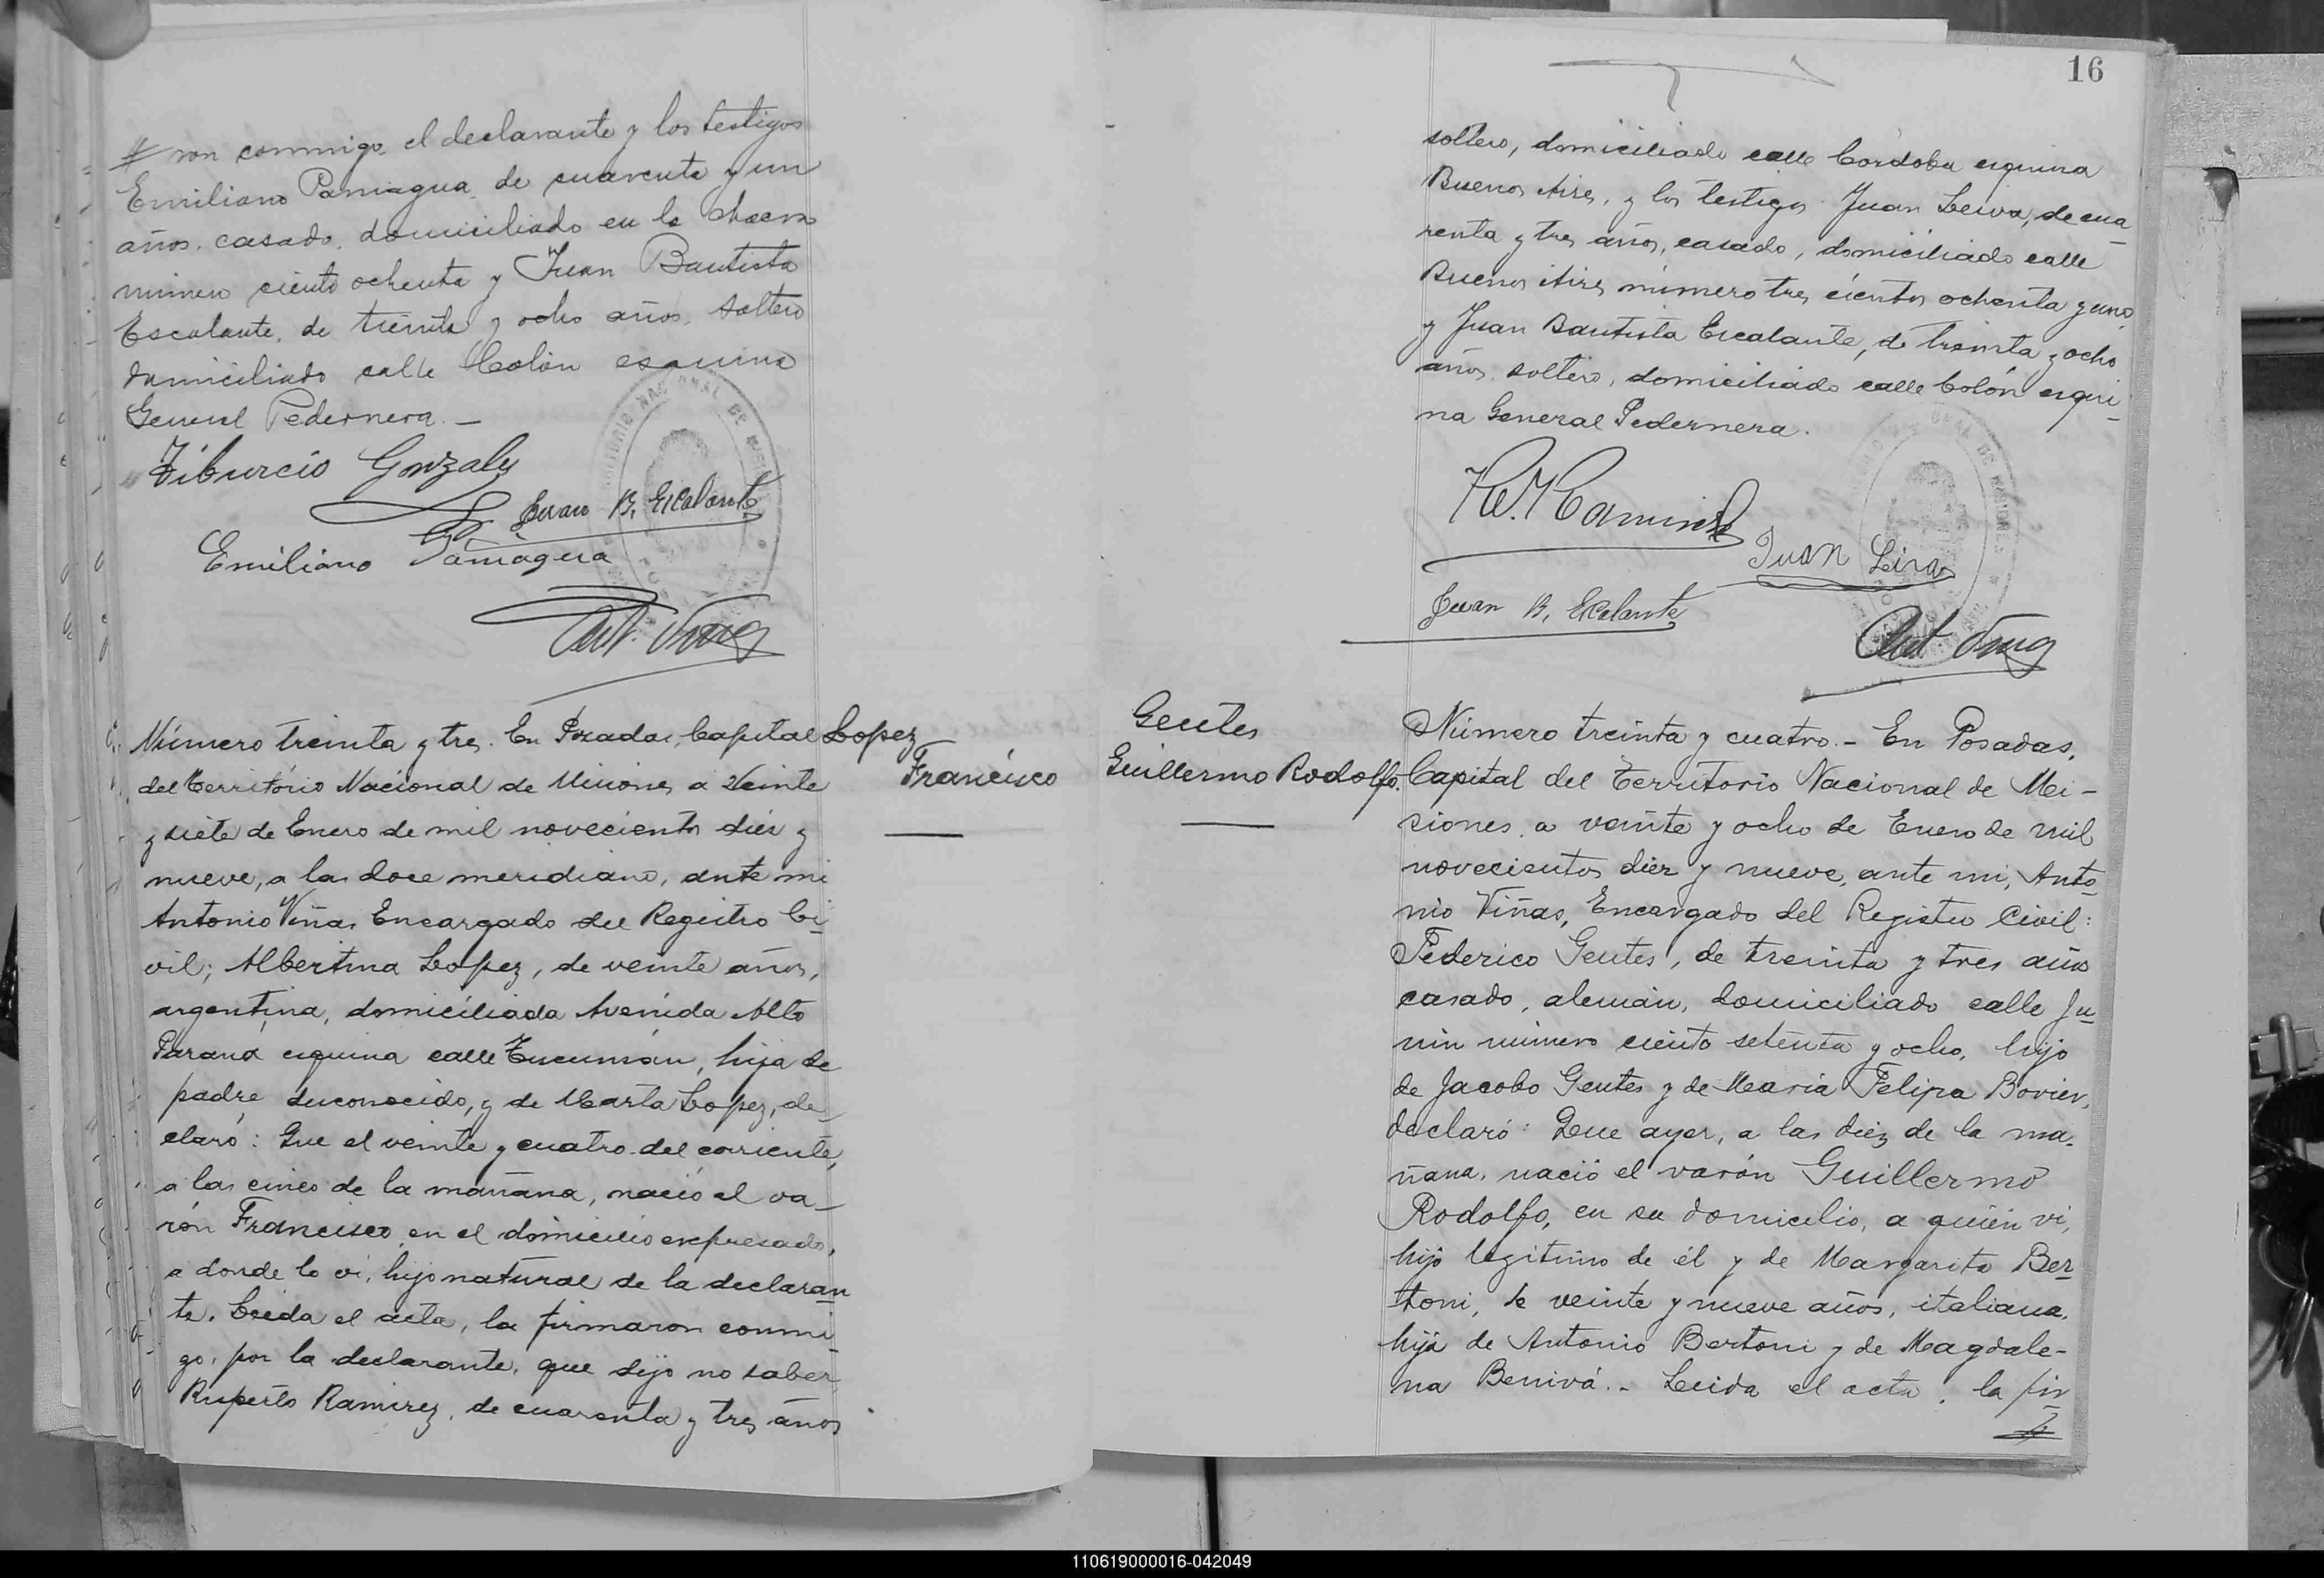 ron conmigo, el declarante y los testigos
Emiliano Paniagua, de cuarenta y un
años, casado, domiciliado en la chacra
número ciento ochenta y Juan Bautista
Escalante, de treinta y ocho años, soltero
domiciliado calle Colón esquina
General Pedernera. —
Tiburcio Gonzalez
Juan B. Escalante
Emiliano Paniagua
Ant. Viñas
Número treinta y tres. En Posadas, Capital
del Territorio Nacional de Misiones a veinte
y siete de Enero de mil novecientos diez y
nueve, a las doce meridiano, ante mi
Antonio Viñas, Encargado del Registro Ci-
vil; Albertina Lopez, de veinte años,
argentina, domiciliada Avenida Alto
Paraná esquina calle Tucumán, hija de
padre desconocido, y de Marta Lopez, de-
claró: Que el veinte y cuatro del corriente,
a las cinco de la mañana, nació el va-
rón Francisco, en el domicilio expresado,
a donde lo vi, hijo natural de la declaran-
te. Leida el acta, la firmaron conmi-
go, por la declarante, que dijo no saber
Ruperto Ramirez, de cuarenta y tres años
Lopez
Francisco
16
soltero, domiciliado calle Córdoba esquina
Buenos Aires, y los testigos Juan Leiva, de cua-
renta y tres años, casado, domiciliado calle
Buenos Aires número tres cientos ochenta y uno
y Juan Bautista Escalante, de treinta y ocho
años, soltero, domiciliado calle Colón esqui-
na General Pedernera.
Juan Leiva
Juan B. Escalante
Ant Viñas
Gentes
Guillermo Rodolfo.
Número treinta y cuatro. - En Posadas,
Capital del Territorio Nacional de Mi-
siones, a veinte y ocho de Enero de mil
novecientos diez y nueve, ante mi, Anto-
nio Viñas, Encargado del Registro Civil:
Federico Gentes, de treinta y tres años
casado, alemán, domiciliado calle Ju-
nin número ciento setenta y ocho, hijo
de Jacobo Gentes y de Maria Felipa Bovier,
declaró: Que ayer, a las diez de la ma-
ñana, nació el varón Guillermo
Rodolfo, en su domicilio, a quién vi,
hijo legitimo de él y de Margarita Ber-
toni, de veinte y nueve años, italiana,
hija de Antonio Bertoni y de Magdale-
na Benivá. - Leida el acta, la fir-
110619000016-042049